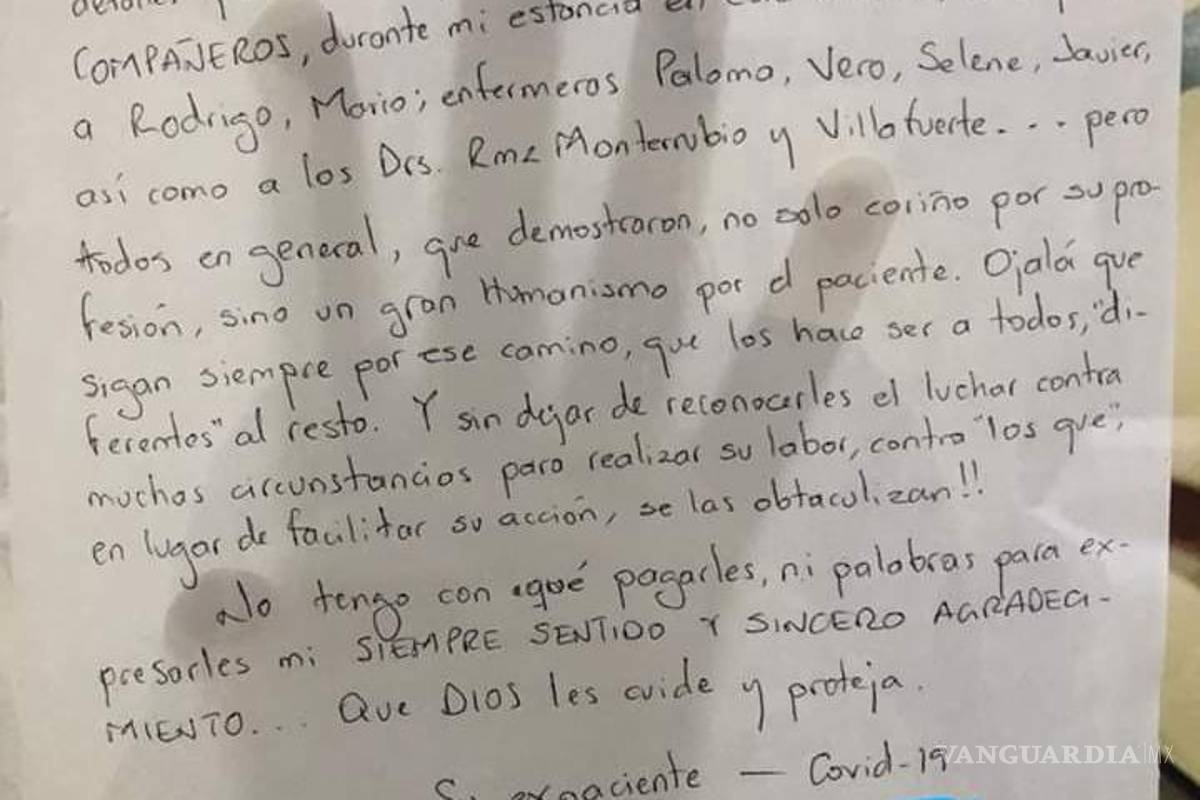 COMPAÑEROS, durante mi estancia en
a Rodrigo, Mario; enfermeros Paloma, Vero, Selene, Javier,
así como a los Drs. Rmz Monterrubio y Villafuerte... pero
todos en general, que demostraron, no solo cariño por su pro-
fesión, sino un gran Humanismo por el paciente. Ojalá que
sigan siempre por ese camino, que los hace ser a todos, "di-
ferentes" al resto. Y sin dejar de reconocerles el luchar contra
muchas circunstancias para realizar su labor, contra "los que",
en lugar de facilitar su acción, se las obtaculizan!!
No tengo con qué pagarles, ni palabras para ex-
presarles mi SIEMPRE SENTIDO Y SINCERO AGRADECI-
MIENTO... Que DIOS les cuide y proteja.
Su expaciente — Covid-19
VANGUARDIA|MX